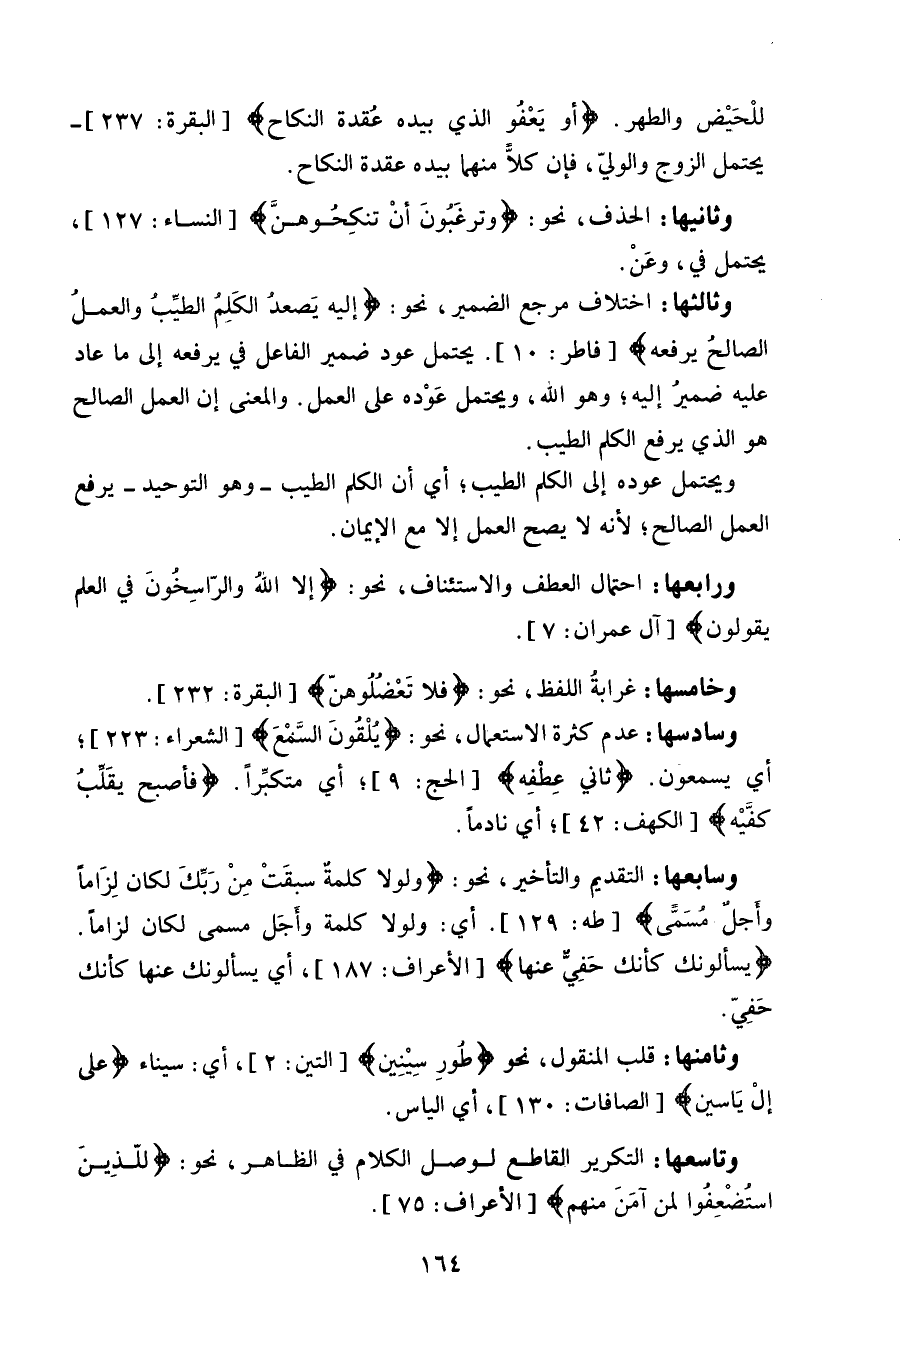 للْحَيْض والطهر. ﴿أو يَعْفُو الذي بيده عُقدة النكاح﴾ [البقرة: ٢٣٧]ـ
يحتمل الزوج والوليّ، فإن كلاًّ منهما بيده عقدة النكاح.
وثانيها: الحذف، نحو: ﴿وترغَبُونَ أنْ تنكِحُـوهـنَّ﴾ [النسـاء: ١٢٧]،
يحتمل في، وعَنْ.
وثالثها: اختلاف مرجع الضمير، نحو: ﴿إليه يَصعدُ الكَلِمُ الطيِّبُ والعمـلُ
الصالحُ يرفعه﴾ [فاطر: ١٠]. يحتمل عود ضمير الفاعل في يرفعه إلى ما عاد
عليه ضميرُ إليه؛ وهو الله، ويحتمل عَوْده على العمل. والمعنى إن العمل الصالح
هو الذي يرفع الكلم الطيب.
ويحتمل عوده إلى الكلم الطيب؛ أي أن الكلم الطيب ـ وهو التوحيد ـ يرفع
العمل الصالح؛ لأنه لا يصح العمل إلا مع الإيمان.
ورابعها: احتمال العطف والاستئناف، نحو: ﴿إلا اللهُ والرّاسِخُونَ في العلم
يقولون﴾ [آل عمران: ٧].
وخامسها: غرابةُ اللفظ، نحو: ﴿فلا تَعْضُلُوهنّ﴾ [البقرة: ٢٣٢].
وسادسها: عدم كثرة الاستعمال، نحو: ﴿يُلْقُونَ السَّمْعَ﴾ [الشعراء: ٢٢٣]؛
أي يسمعون. ﴿ثاني عِطْفِه﴾ [الحج: ٩]؛ أي متكبِّراً. ﴿فأصبح يقَلِّبُ
كفَّيْه﴾ [الكهف: ٤٢]؛ أي نادماً.
وسابعها: التقديم والتأخير، نحو: ﴿ولولا كلمةٌ سبقَتْ مِنْ رَبِّكَ لكان لِزَاماً
وأَجلٌ مُسَمًّى﴾ [طه: ١٢٩]. أي: ولولا كلمة وأَجَل مسمى لكان لزاماً.
﴿يسألونك كأنك حَفِيٌّ عنها﴾ [الأعراف: ١٨٧]، أي يسألونك عنها كأنك
حَفِيّ.
وثامنها: قلب المنقول، نحو ﴿طُورِ سِيْنِين﴾ [التين: ٢]، أي: سيناء ﴿على
إلْ يَاسين﴾ [الصافات: ١٣٠]، أي الياس.
وتاسعها: التكرير القاطـع لـوصـل الكلام في الظـاهـر، نحو: ﴿للّـذِيـنَ
استُضْعِفُوا لمن آمَنَ منهم﴾ [الأعراف: ٧٥].
١٦٤